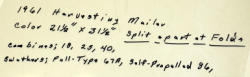 1961 Harvesting Mailer
Color 21½" x 31½" Split apart at Folds
Combines; 18, 25, 40,
Swathers; Pull-Type 67A, Self-Propelled 86,